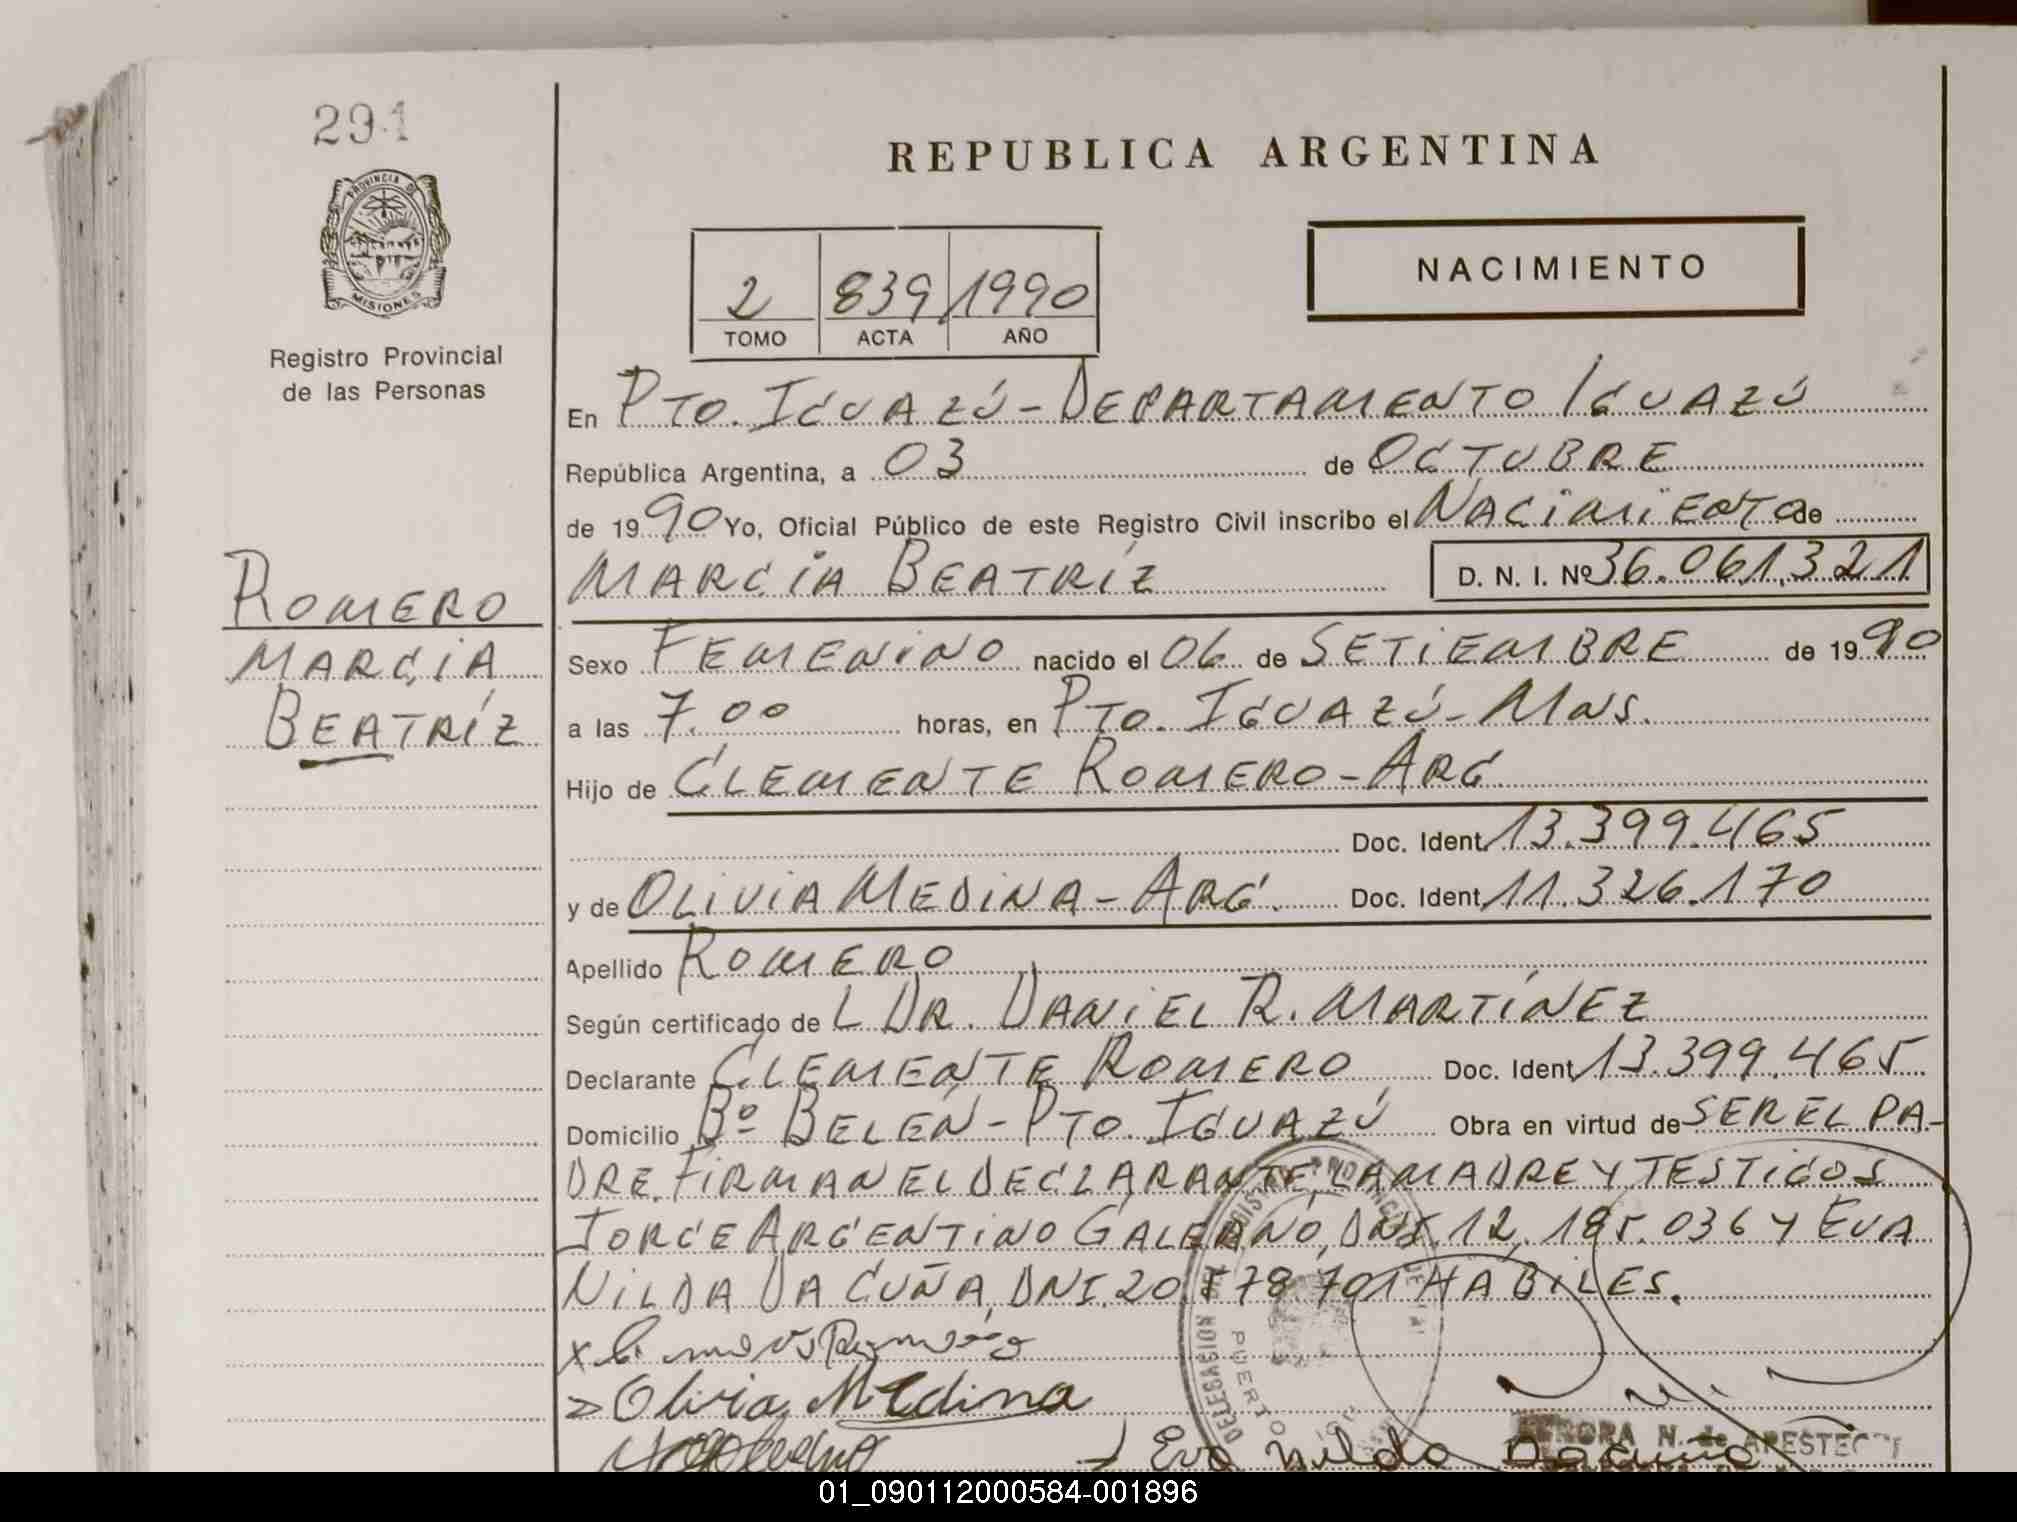 291
PROVINCIA DE
MISIONES
Registro Provincial
de las Personas
ROMERO
MARCIA
BEATRÍZ
REPUBLICA ARGENTINA
2 839 1990
TOMO ACTA AÑO
NACIMIENTO
En PTO. IGUAZÚ - DEPARTAMENTO IGUAZÚ
República Argentina, a 03 de OCTUBRE
de 1990 Yo, Oficial Público de este Registro Civil inscribo el NACIMIENTO de
MARCIA BEATRÍZ D. N. I. Nº 36.061.321
Sexo FEMENINO nacido el 06 de SETIEMBRE de 1990
a las 7.00 horas, en PTO. IGUAZÚ - MNS.
Hijo de CLEMENTE ROMERO - ARG
Doc. Ident. 13.399.465
y de OLIVIA MEDINA - ARG. Doc. Ident. 11.326.170
Apellido ROMERO
Según certificado de L DR. DANIEL R. MARTÍNEZ
Declarante CLEMENTE ROMERO Doc. Ident. 13.399.465
Domicilio Bº BELÉN - PTO. IGUAZÚ Obra en virtud de SER EL PA-
DRE. FIRMAN EL DECLARANTE, LA MADRE Y TESTIGOS
JORGE ARGENTINO GALEANO, DNI. 12.185.036 Y EVA
NILDA DA CUÑA, DNI. 20.578.701 HABILES.
x Romero
Olivia Medina
Eva Nilda Dacuña
DELEGACION
PUERTO
N. de
01_090112000584-001896